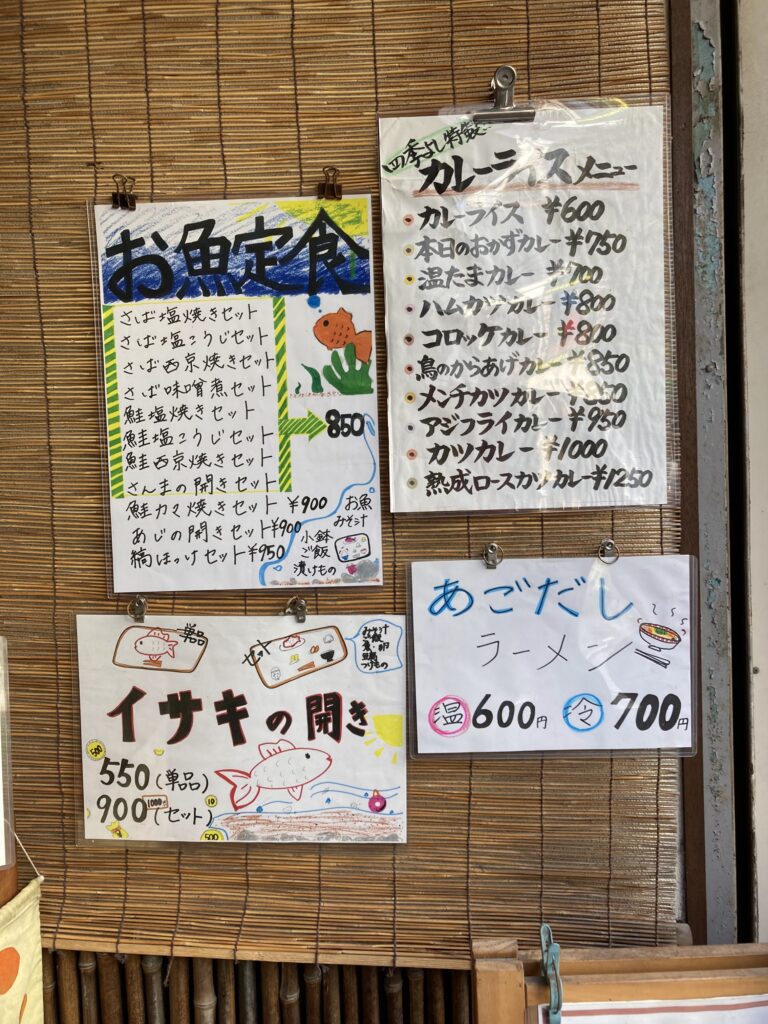 お魚定食
さば塩焼きセット
さば塩こうじセット
さば西京焼きセット
さば味噌煮セット
鮭塩焼きセット
鮭塩こうじセット
鮭西京焼きセット
さんまの開きセット
850
鮭カマ焼きセット ¥900
あじの開きセット¥900
縞ほっけセット¥950
お魚
みそ汁
小鉢
ご飯
漬けもの
四季よし特製
カレーライスメニュー
カレーライス ¥600
本日のおかずカレー¥750
温たまカレー ¥700
ハムカツカレー¥800
コロッケカレー¥800
鳥のからあげカレー¥850
メンチカツカレー¥850
アジフライカレー¥950
カツカレー¥1000
熟成ロースカツカレー¥1250
単品
セット
みそ汁
つけもの
イサキの開き
500
550(単品)
900(セット)
1000
10
500
あごだし
ラーメン
温600円 冷700円